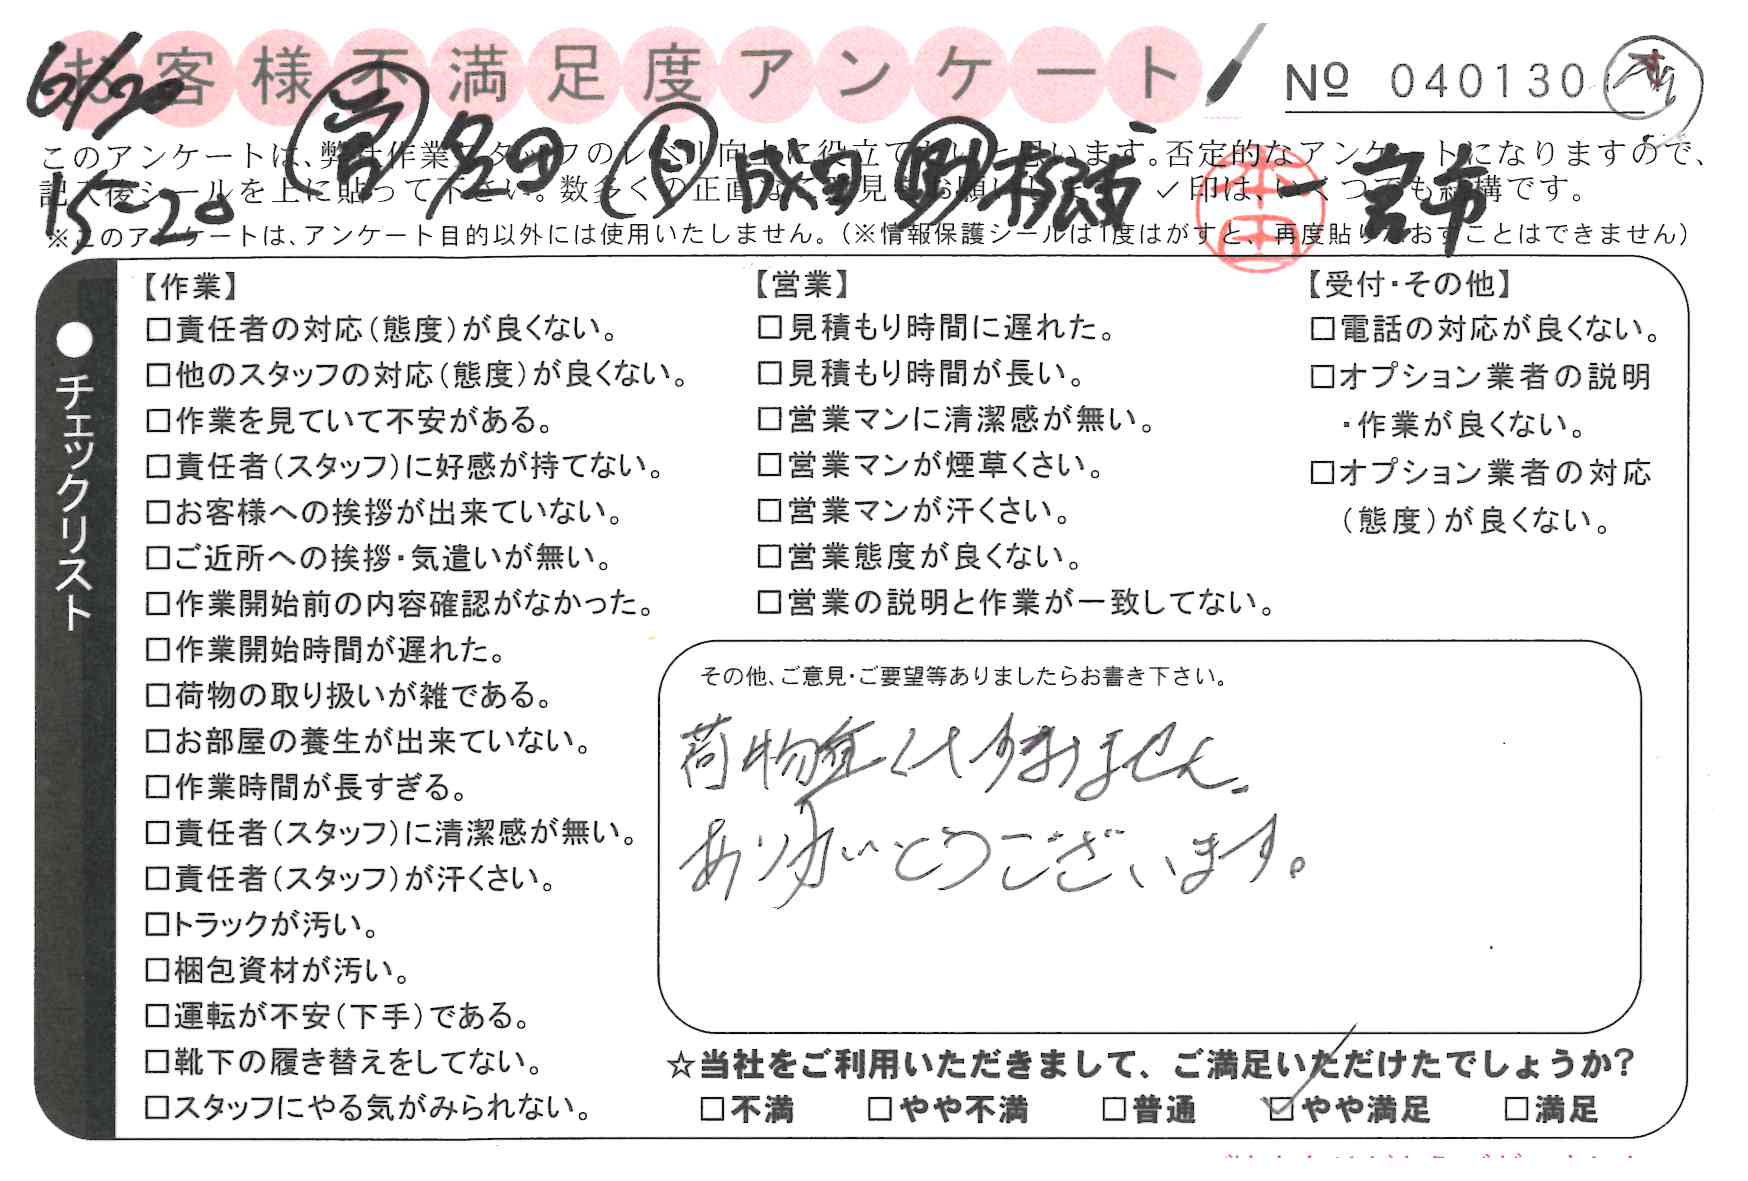 お客様不満足度アンケート
№ 040130
6/20
15-20
このアンケートは、弊社作業スタッフのレベル向上に役立てたいと思います。否定的なアンケートになりますので、
記入後シールを上に貼って下さい。数多くの正直なご意見をお願いします。✓印は、いくつでも結構です。
※このアンケートは、アンケート目的以外には使用いたしません。（※情報保護シールは1度はがすと、再度貼りなおすことはできません）
一宮市
本田
●チェックリスト
【作業】
□責任者の対応（態度）が良くない。
□他のスタッフの対応（態度）が良くない。
□作業を見ていて不安がある。
□責任者（スタッフ）に好感が持てない。
□お客様への挨拶が出来ていない。
□ご近所への挨拶・気遣いが無い。
□作業開始前の内容確認がなかった。
□作業開始時間が遅れた。
□荷物の取り扱いが雑である。
□お部屋の養生が出来ていない。
□作業時間が長すぎる。
□責任者（スタッフ）に清潔感が無い。
□責任者（スタッフ）が汗くさい。
□トラックが汚い。
□梱包資材が汚い。
□運転が不安（下手）である。
□靴下の履き替えをしてない。
□スタッフにやる気がみられない。
【営業】
□見積もり時間に遅れた。
□見積もり時間が長い。
□営業マンに清潔感が無い。
□営業マンが煙草くさい。
□営業マンが汗くさい。
□営業態度が良くない。
□営業の説明と作業が一致してない。
【受付・その他】
□電話の対応が良くない。
□オプション業者の説明
・作業が良くない。
□オプション業者の対応
（態度）が良くない。
その他、ご意見・ご要望等ありましたらお書き下さい。
荷物重くてすみません。
ありがとうございます。
☆当社をご利用いただきまして、ご満足いただけたでしょうか？
□不満 □やや不満 □普通 ☑やや満足 □満足